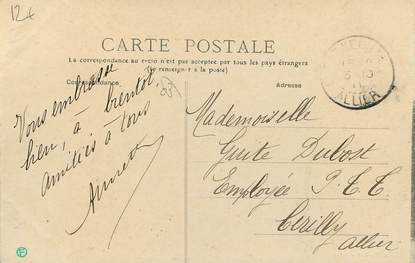 12f
CARTE POSTALE
La correspondance au recto n'est pas acceptée par tous les pays étrangers
(Se renseigner à la poste)
Correspondance
Adresse
ALLIER
03
Vous embrasse
bien, à bientot,
amitiés à tous
Mademoiselle
Guite Dubost
Employée P.T.T.
Cerilly
Allier